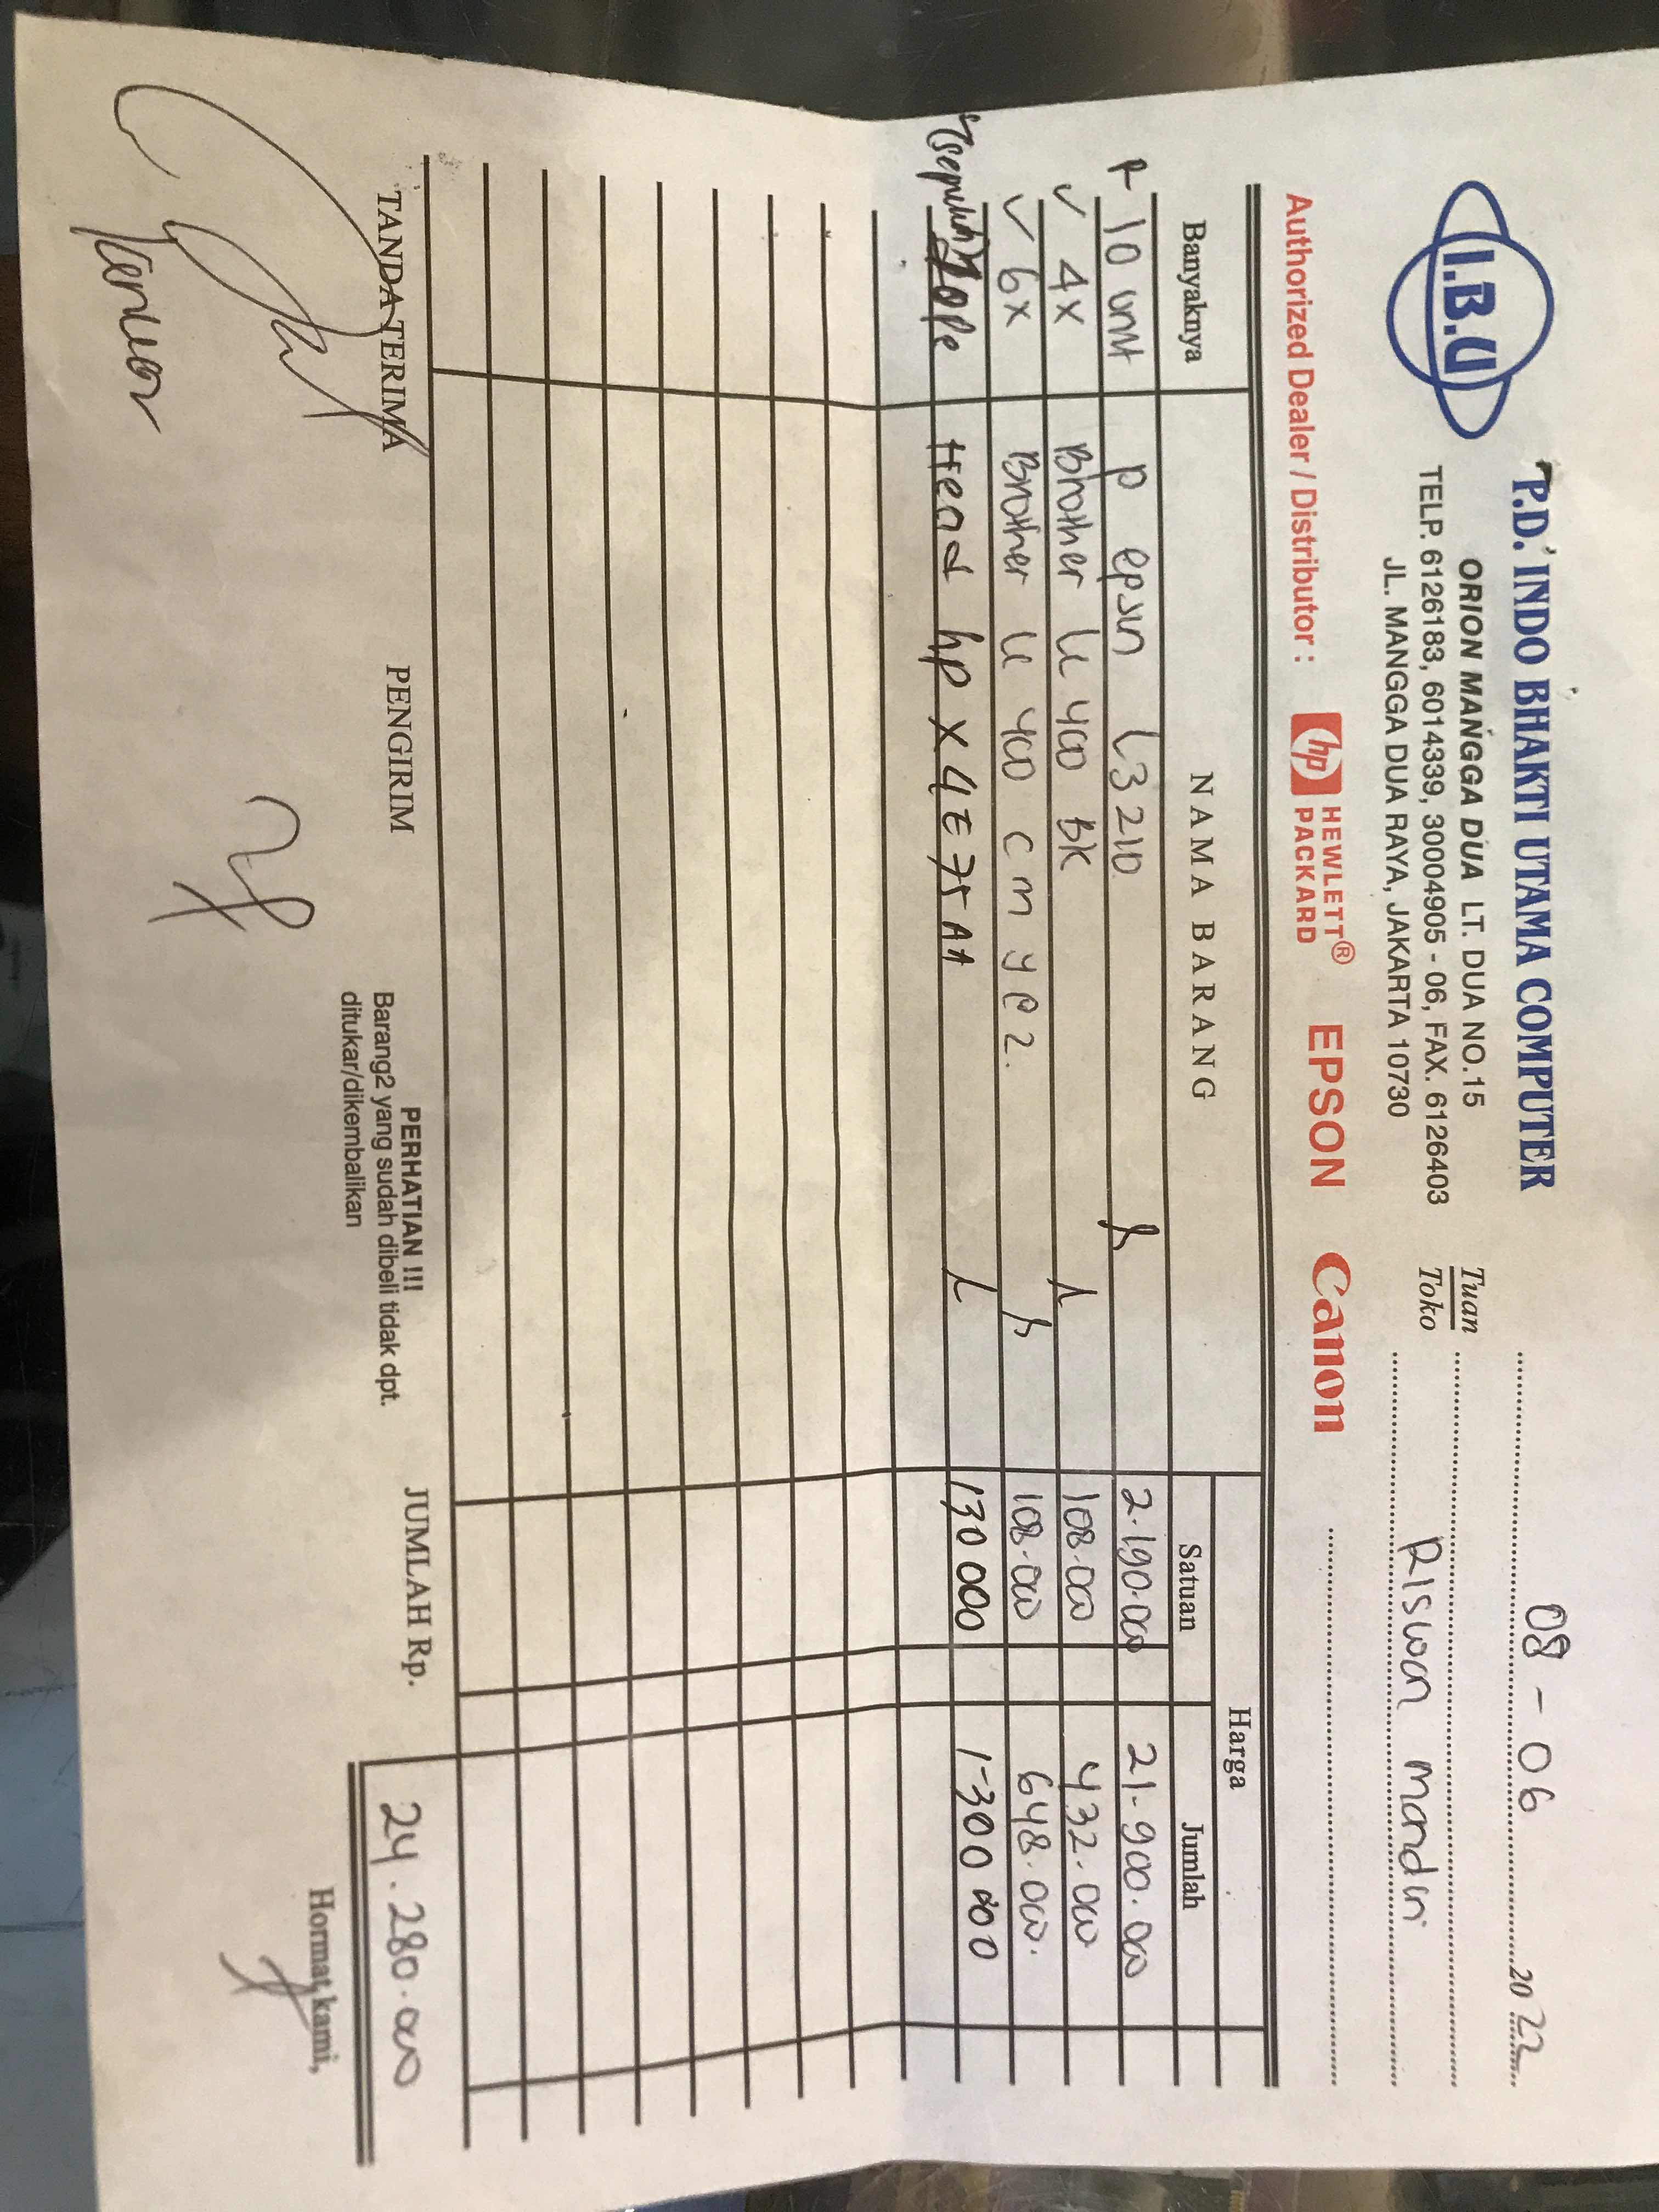 I.B.U
P.D. INDO BHAKTI UTAMA COMPUTER
ORION MANGGA DUA LT. DUA NO.15
TELP. 6126183, 6014339, 30004905 - 06, FAX. 6126403
JL. MANGGA DUA RAYA, JAKARTA 10730
08 - 06 2022
Tuan
Toko
Riswan mandiri
Authorized Dealer / Distributor : hp HEWLETT® PACKARD EPSON Canon
Banyaknya NAMA BARANG Harga
Satuan Jumlah
10 unit P epson L3210 2.190.000 21.900.000
4x Brother 400 BK 108.000 432.000
6x Brother 400 C m y @ 2. 108.000 648.000.
(sepuluh) Head hp X4E75AA 130000 1300000
TANDA TERIMA PENGIRIM
PERHATIAN !!!
Barang2 yang sudah dibeli tidak dpt.
ditukar/dikembalikan
JUMLAH Rp. 24.280.000
Hormat kami,